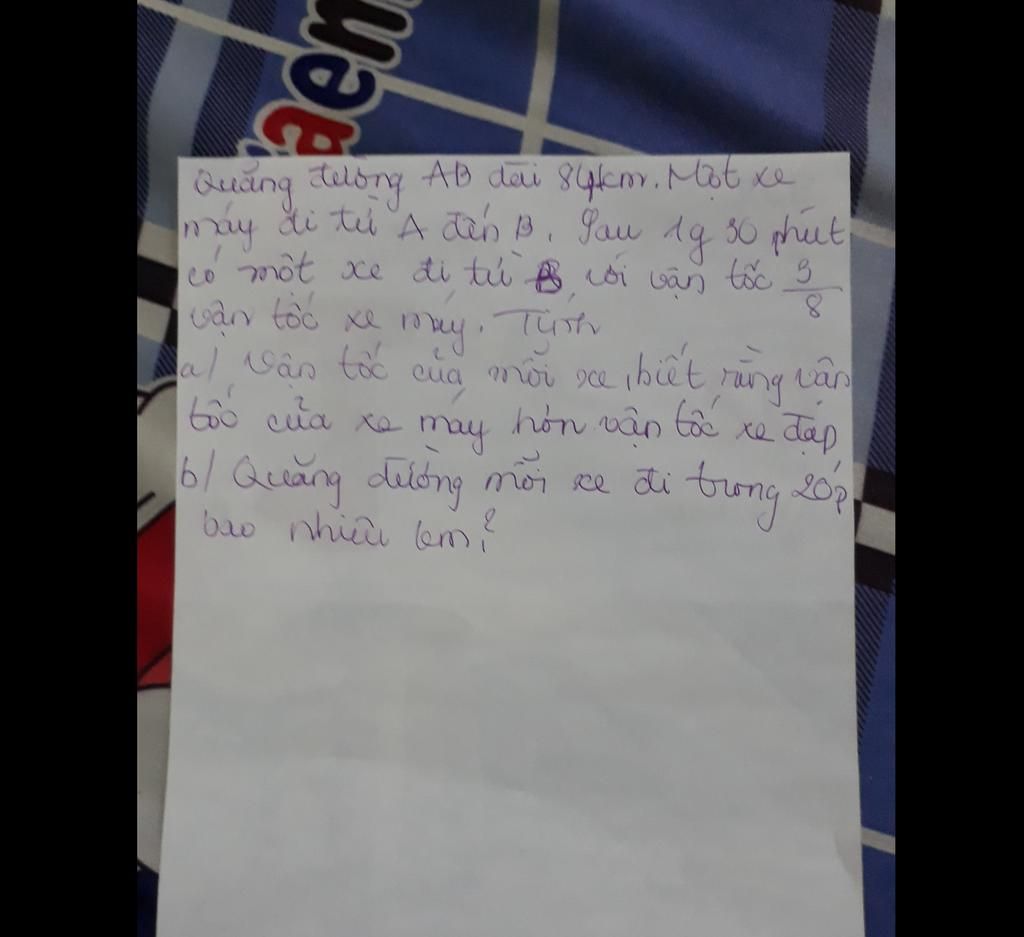 em
Quãng đường AB dài 84km. Một xe
máy đi từ A đến B. Sau 1g 30 phút
có một xe đi từ B với vận tốc 3/8
vận tốc xe máy. Tính
a/ Vận tốc của mỗi xe, biết rằng vận
tốc của xe máy hơn vận tốc xe đạp
b/ Quãng đường mỗi xe đi trong 20p
bao nhiêu km?